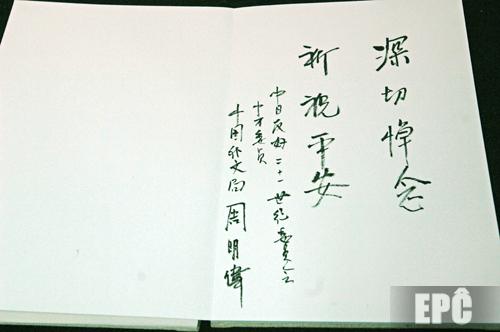 深切悼念
祈祝平安
中日友好二十一世纪委员会
中方委员
中国外文局 周明偉
EPĈ